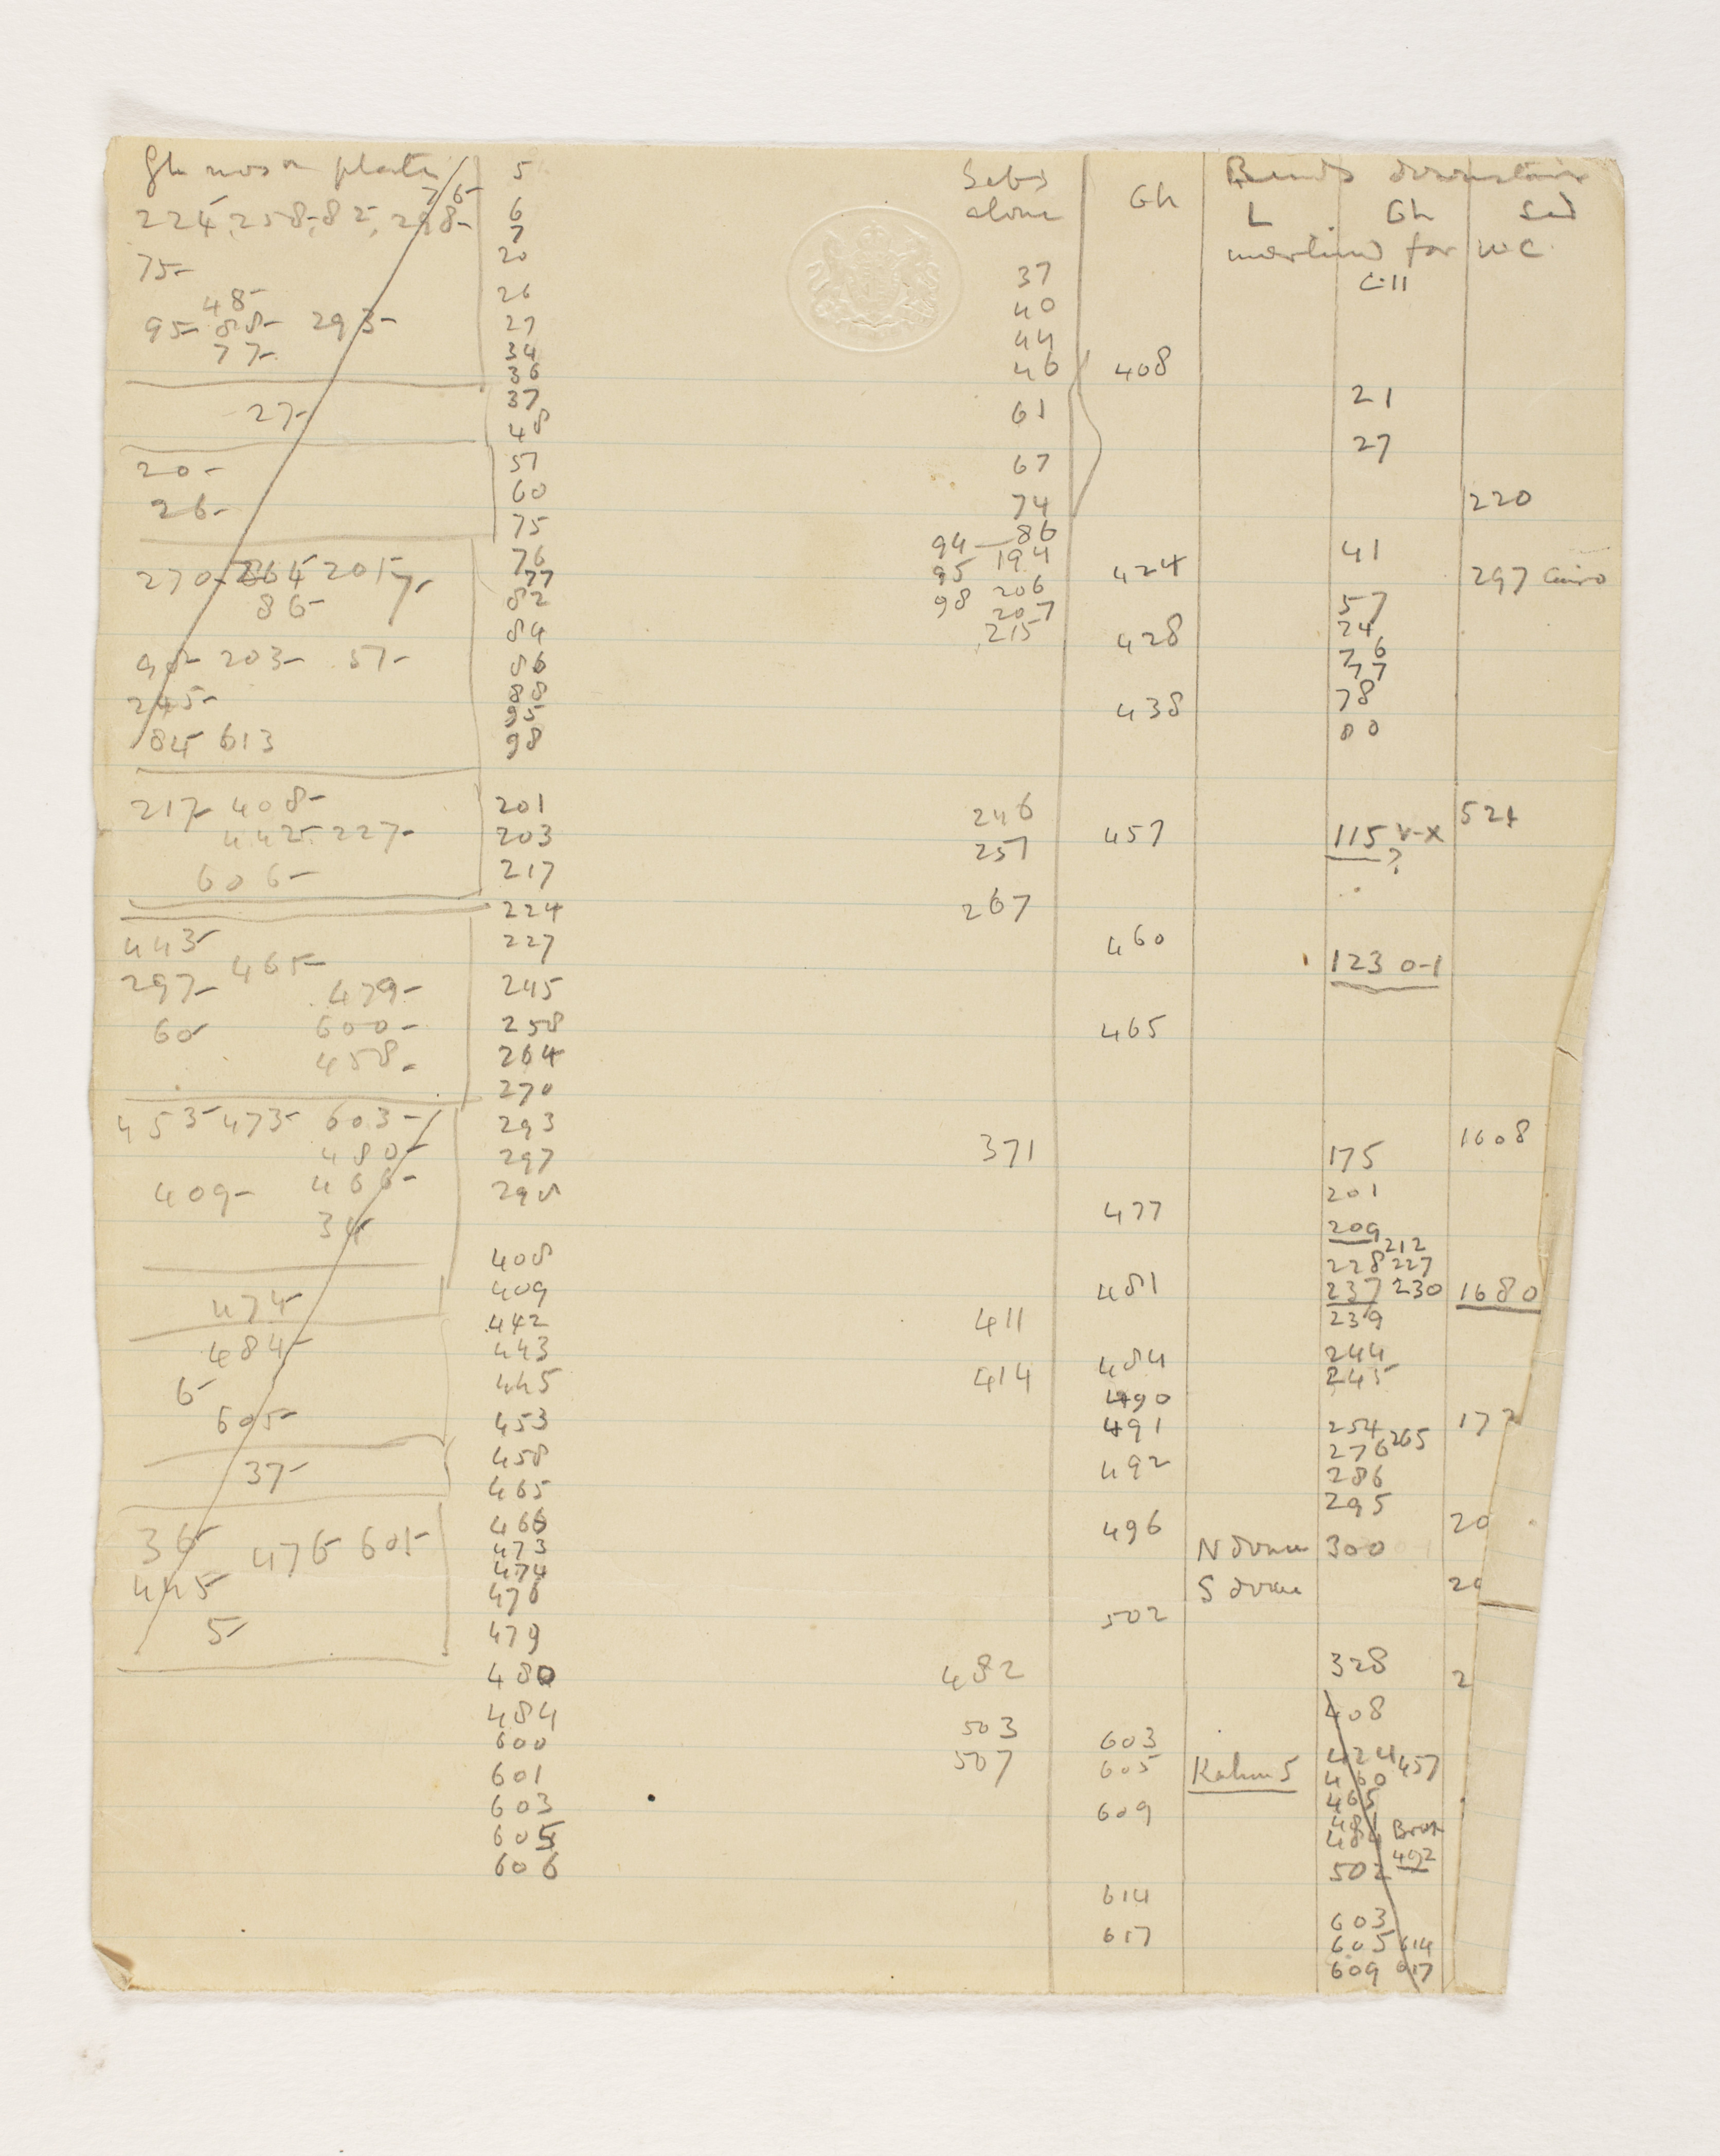 Gh nos on plate
76-
224, 258-, 82-, 298-
75-
48-
95- 88- 293-
77-
27-
20-
26-
270- 264- 201-
86-
203- 57-
245-
84- 613
217- 408-
442- 227-
606-
443-
465-
297- 479-
60- 600-
458-
453- 473- 603-
480-
409- 466-
34-
474-
484-
6-
605-
37-
36- 476- 601-
445-
5-
5
6
7
20
26
27
34
36
37
48
57
60
75
76
77
82
84
86
88
95
98
201
203
217
224
227
245
258
264
270
293
297
298
408
409
442
443
445
453
458
465
466
473
474
476
479
480
484
600
601
603
605
606
alone
37
40
44
46
61
67
74
94 — 86
95 194
98 206
207
215
246
257
267
371
411
414
482
503
507
Gh
408
424
428
438
457
460
465
477
481
484
490
491
492
496
502
603
605
609
614
617
L Gh Sed
for WC
C.11
21
27
41
57
24
76
77
78
80
115 v-x
?
123 0-1
175
201
209
212
228 227
237 230
239
244
245
254
276 265
286
295
N drawer 300
S drawer
328
408
424 457
Kahun 5 460
465
481
484
492
502
603
605 614
609 617
220
297 Cairo
524
1608
1680
172
20
20
2